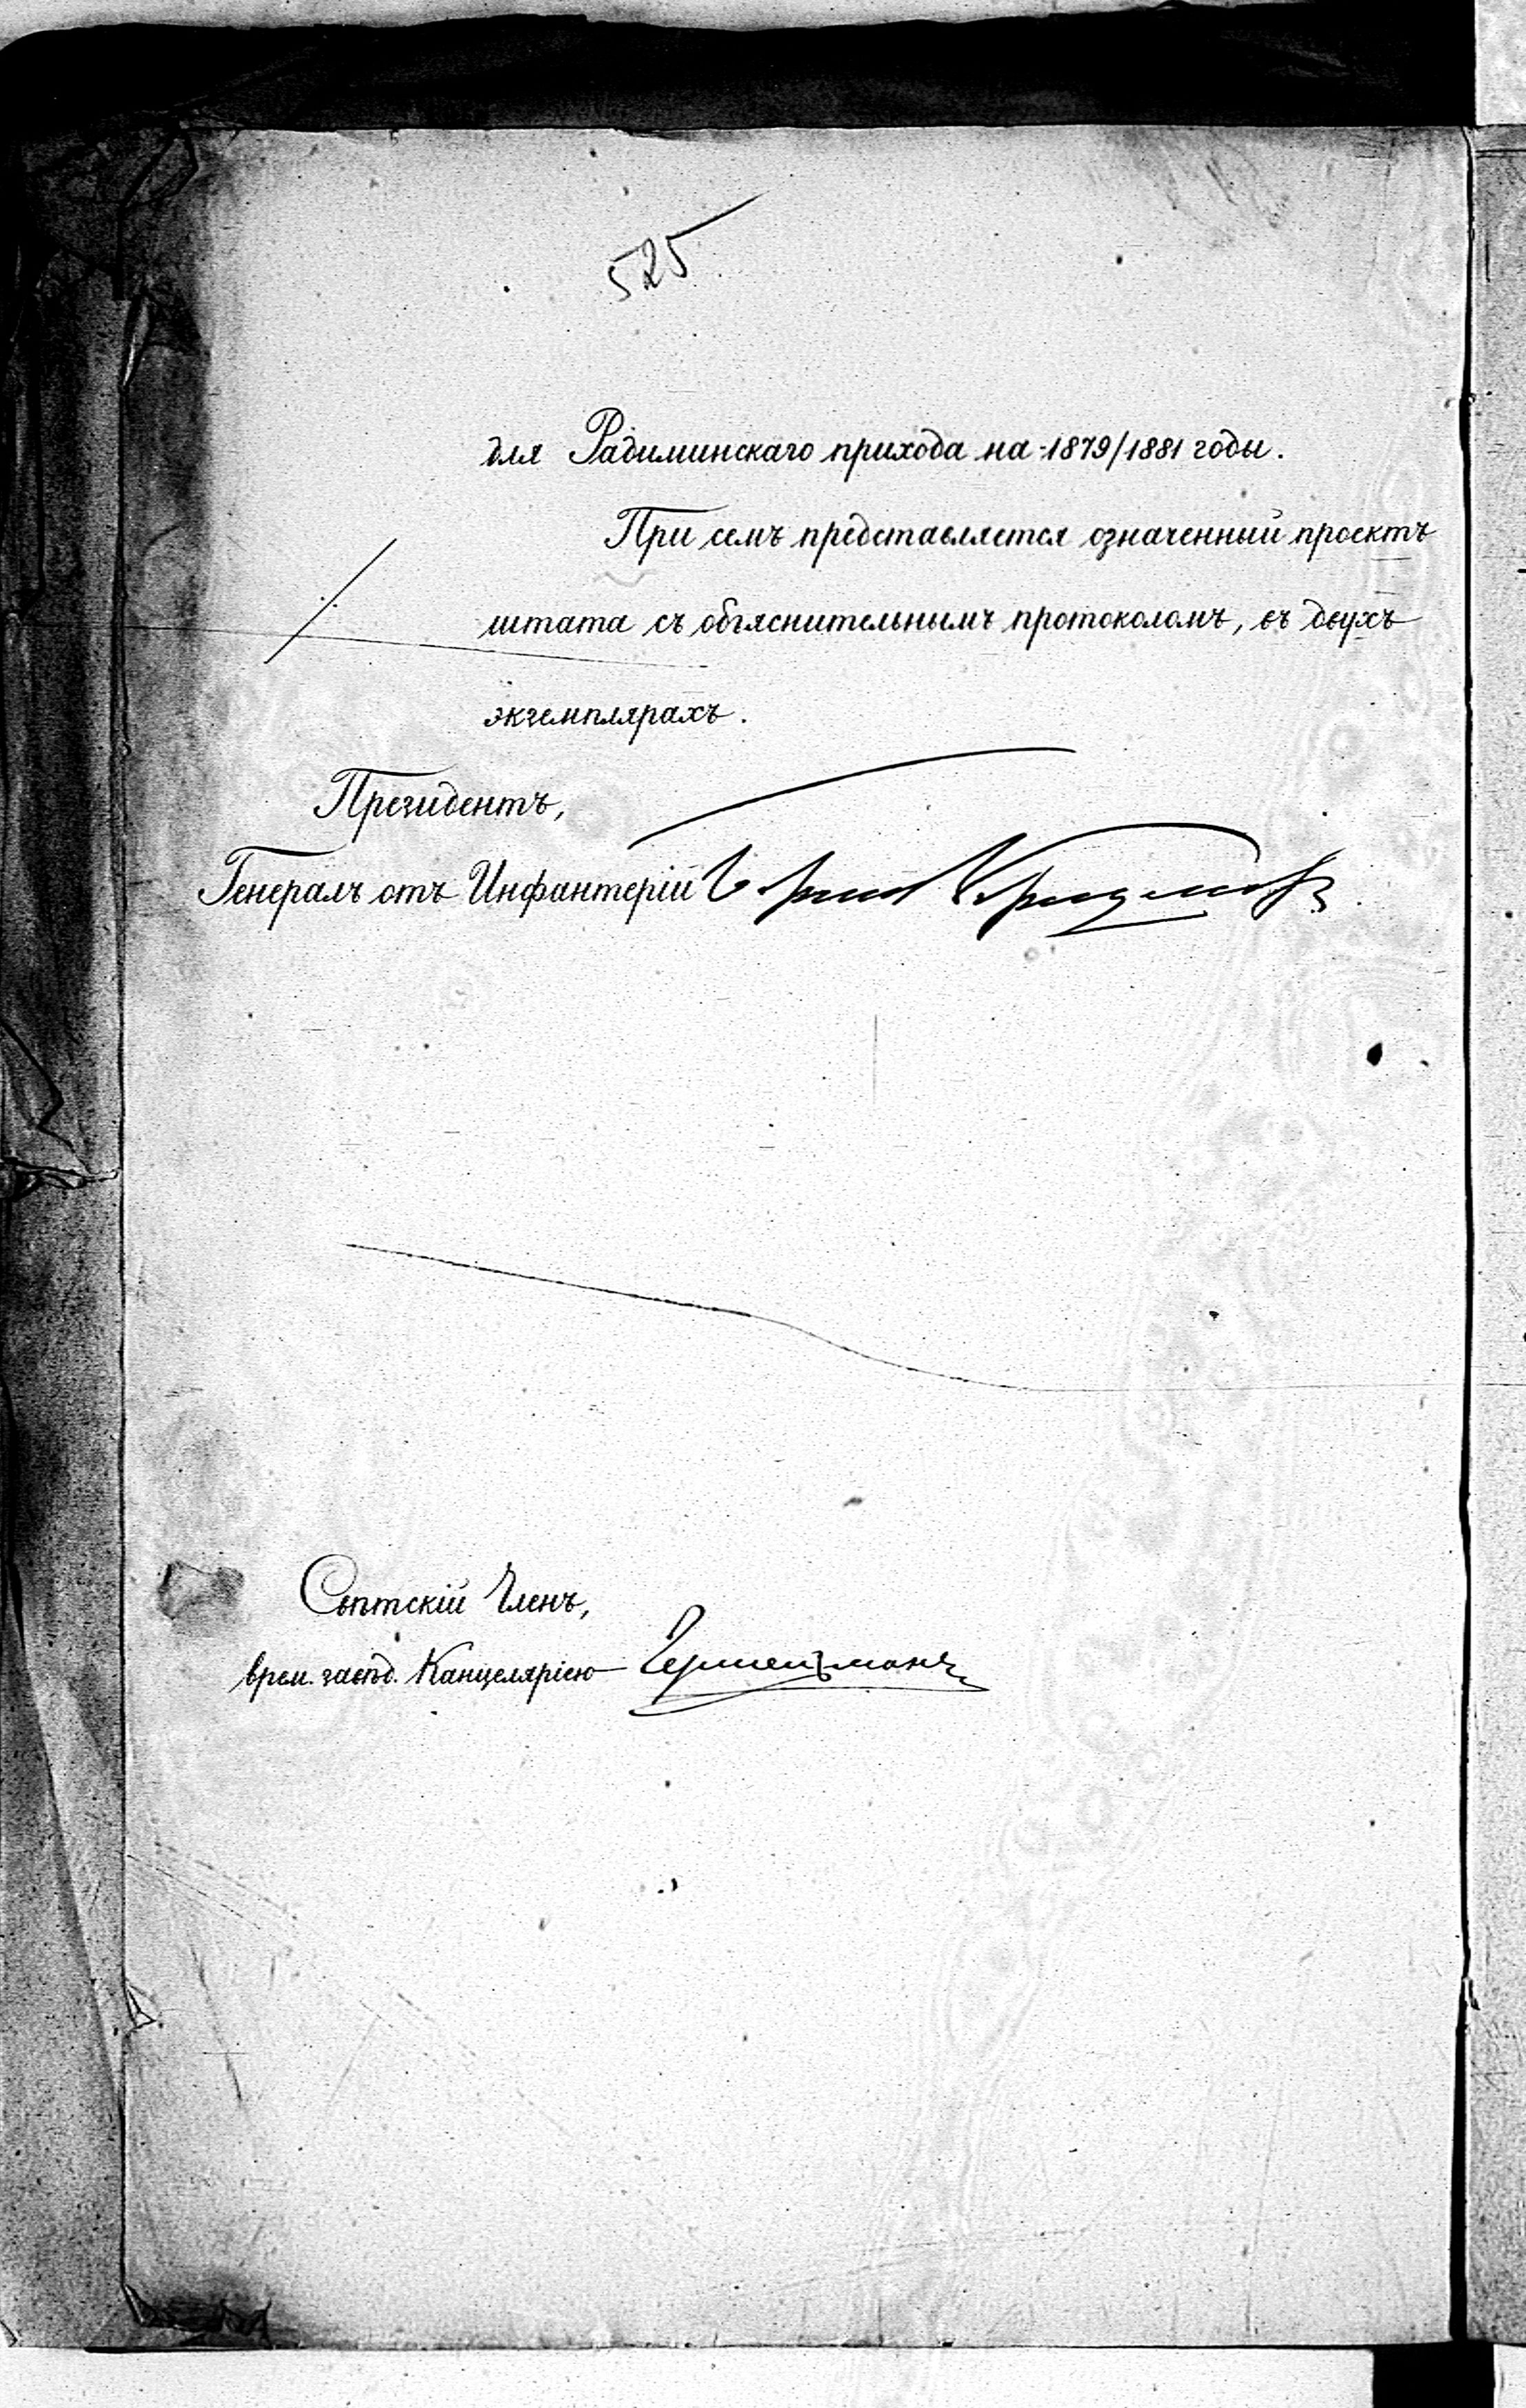 525
для Радиминскаго прихода на 1879/1881 годы.
При семъ представляется означенный проектъ
штата съ объяснительнымъ протоколомъ, въ двухъ
экземплярахъ.
Президентъ,
Генералъ отъ Инфантеріи
Свѣтскій Членъ,
врем. завѣд. Канцеляріею